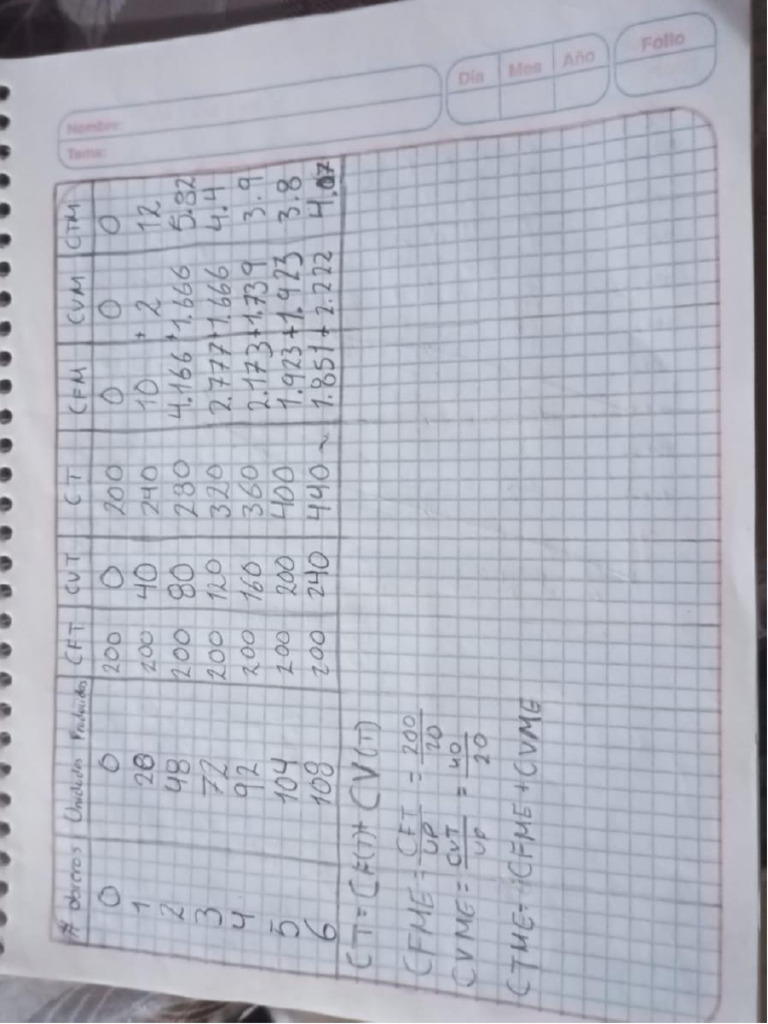 Día Mes Año Folio
Nombre:
Tema:
# obreros Unidades Producidas CFT CVT CT CFM CVM CTM
0 0 200 0 200 0 0 0
1 20 200 40 240 10 + 2 12
2 48 200 80 280 4.166 + 1.666 5.82
3 72 200 120 320 2.777 + 1.666 4.4
4 92 200 160 360 2.173 + 1.739 3.9
5 104 200 200 400 1.923 + 1.923 3.8
6 108 200 240 440 ~ 1.851 + 2.222 4.07
CT = CF(T) + CV(T)
CFME = CFT/UP = 200/20
CVME = CVT/UP = 40/20
CTME = CFME + CVME